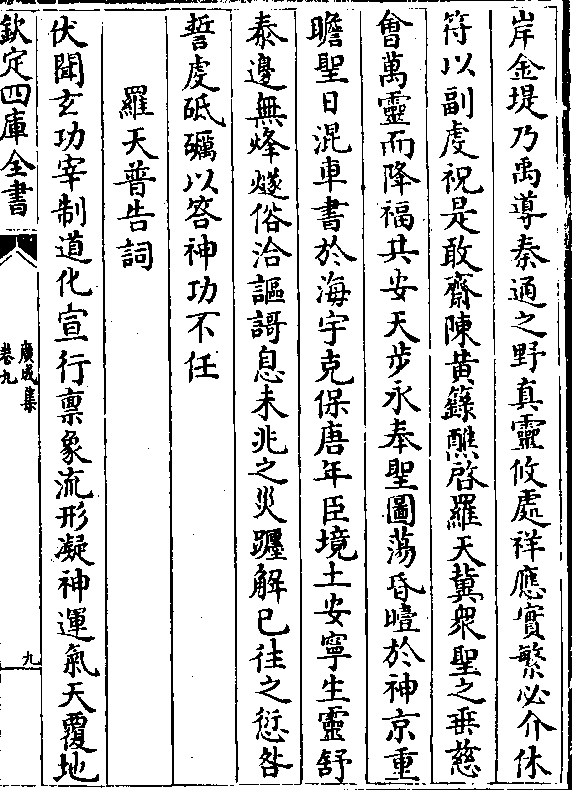 岸金堤乃禹導秦通之野真靈攸處祥應實繁必介休
符以副虔祝是敢齋陳黄籙醮啓羅天冀衆聖之垂慈
㑹萬靈而降福共安天步永奉聖圖蕩昏曀於神京重
瞻聖日混車書於海宇克保唐年臣境土安寧生靈舒
泰邊無烽燧俗洽謳謌息未兆之災躔解已往之愆咎
誓虔砥礪以答神功不任
羅天普告詞
伏聞玄功宰制道化宣行禀象流形凝神運氣天覆地
欽定四庫全書
廣成集
卷九
九